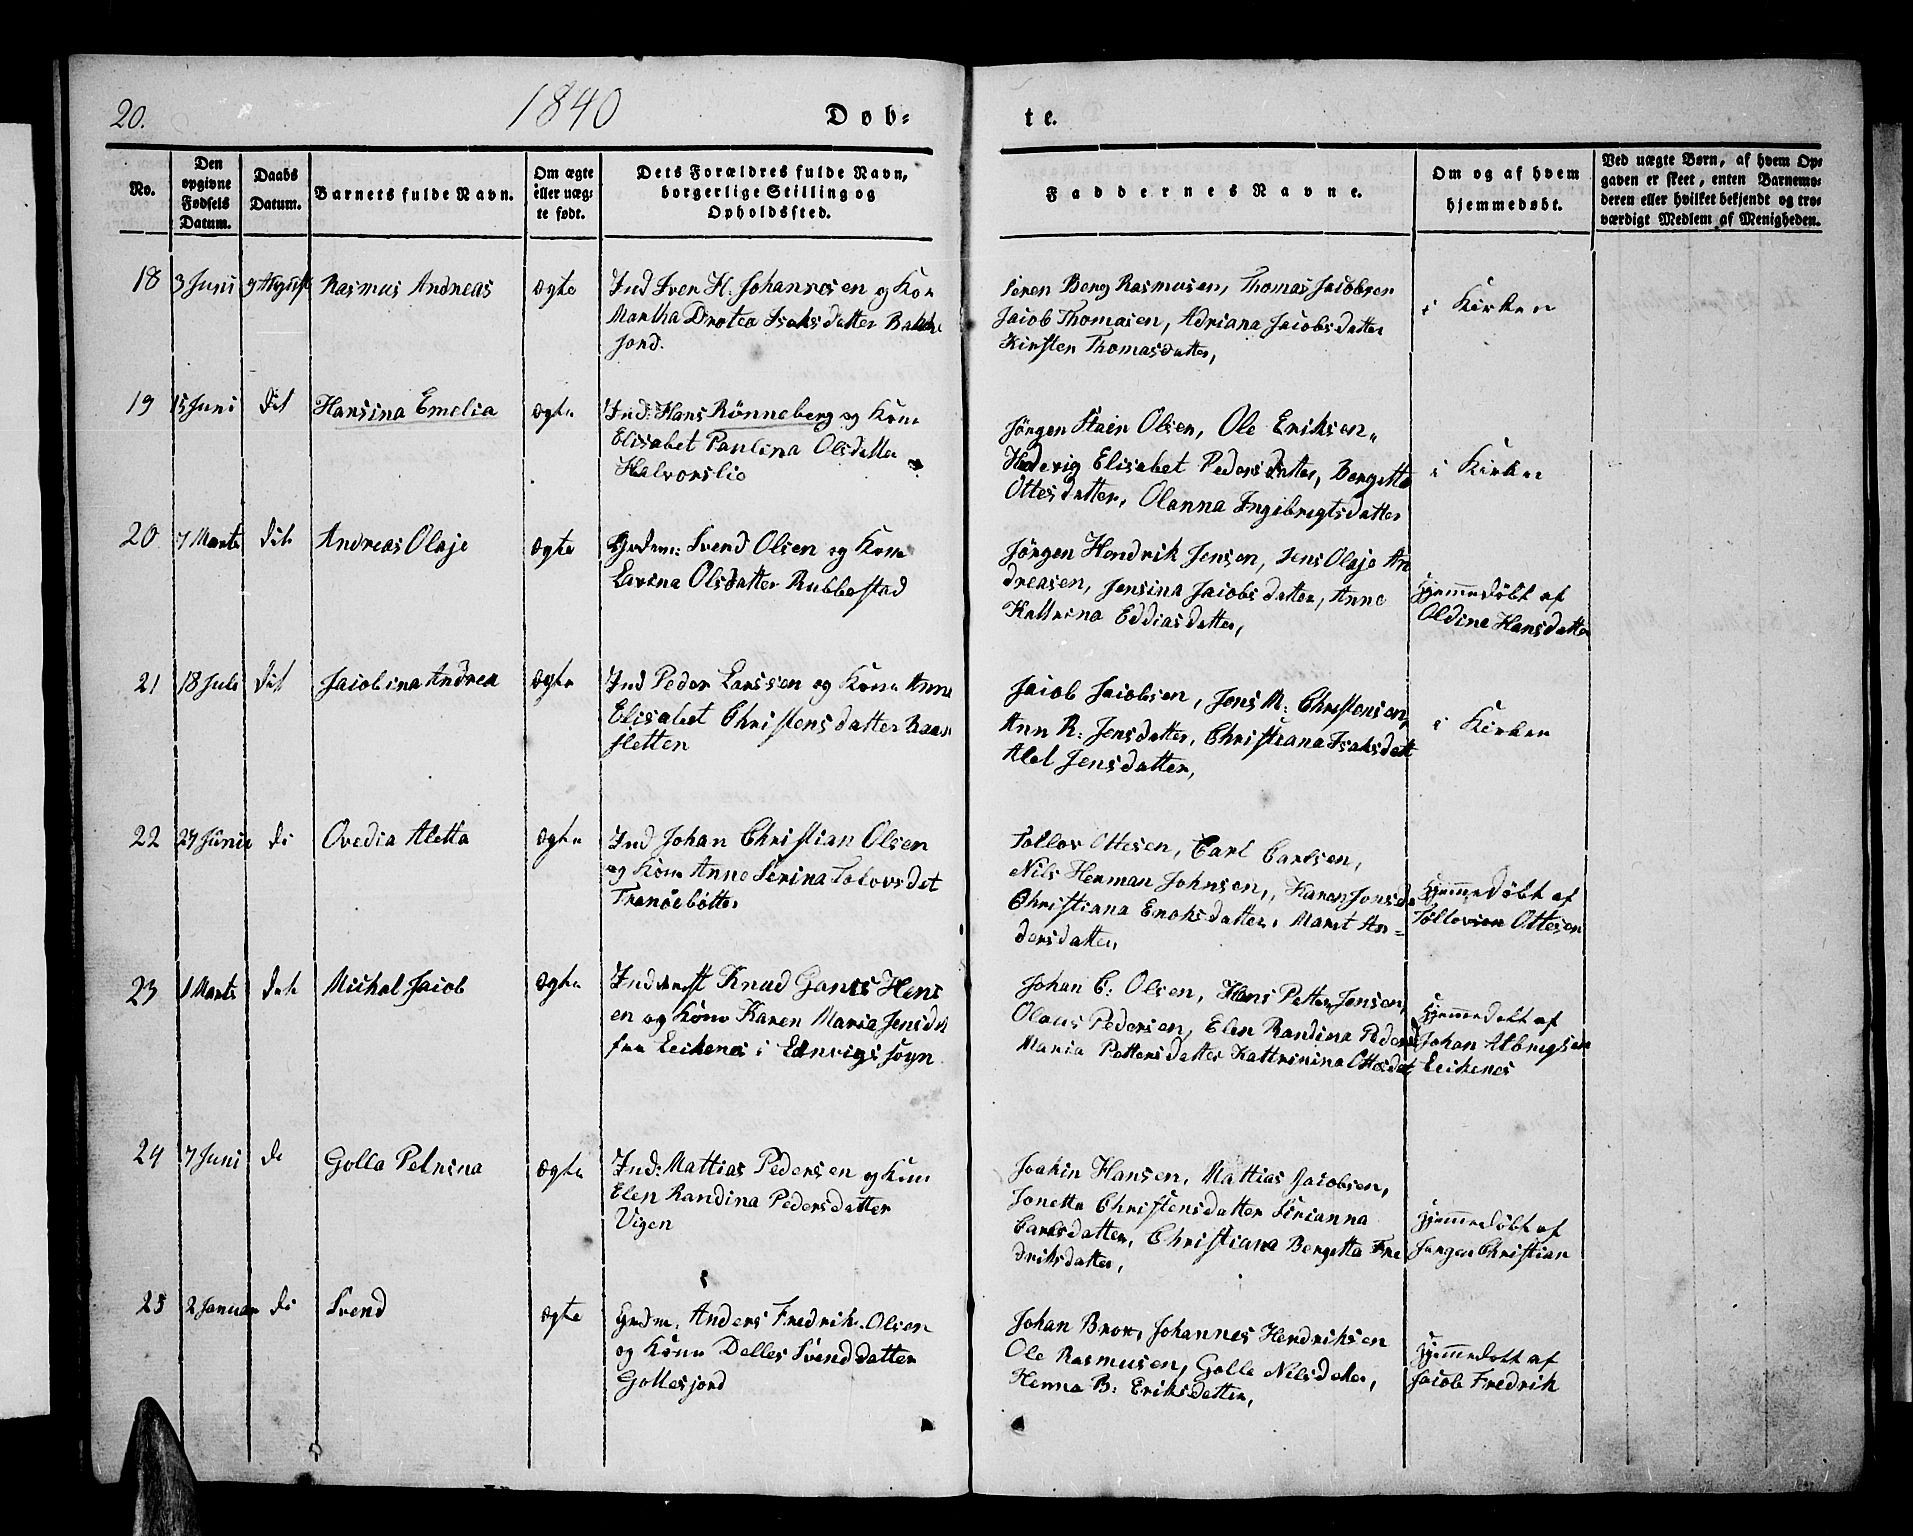 20.
1840
Døb-
te.
No.
Den opgivne Fødsels Datum.
Daabs Datum.
Barnets fulde Navn.
Om ægte eller uægte født.
Dets Forældres fulde Navn, borgerlige Stilling og Opholdssted.
Faddernes Navne.
Om og af hvem hjemmedøbt.
Ved uægte Børn, af hvem Opgaven er skeet, enten Barnemoderen eller hvilket bekjendt og troværdigt Medlem af Menigheden.
18 3 Juni 9 August Rasmus Andreas ægte
Ind Iver H. Johannesen og Kon
Martha Drotea Isaksdatter
jord.
Søren Berg Rasmusen, Thomas Jacobsen
Jacob Thomasen, Adriana Jacobsdatter
Kirsten Thomasdatter,
i Kirken
19 15 Juni dit Hansina Emelia ægte
Ind: Hans Rönneberg og Kone
Elisabet Paulina Olsdatter
Halvorslio
Jörgen Stain Olsen, Ole Eriksen,
Hedevig Elisabet Pedersdatter, Bergitte
Ottesdatter, Olanna Ingebregtsdatter
i Kirken
20 7 Marts dit Andreas Olaje ægte
Grdm: Svend Olsen og Kone
Lavina Olsdatter Rubbestad
Jörgen Hendrik Jensen, Jens Olaje An
dreasen, Jensina Jacobsdatter, Anne
Kattrina Eddiasdatter,
Hjemmedöbt af
Oldine Hansdatter
21 18 Juli dit Jacobina Andrea ægte
Ind Peder Larssen og Kone Anne
Elisabet Christensdatter
sletten
Jacob Jacobsen, Jens M: Christensen,
Ann R: Jensdatter, Christiana Isaksdatt
Alet Jensdatter,
i Kirken
22 24 Junii di Ovedia Aletta ægte
Ind Johan Christian Olsen
og Kone Anne Serina Tolovsdet
Tranöebötte
Tollov Ottesen, Carl Carlsen,
Nils Herman Johnsen, Karen Jonsda
Christiana Enoksdatter, Maret An-
dersdatter,
Hjemmedöbt af
Tollovsen Ottesen
23 1 Marts dit Michal Jacob ægte
Inderst Knud Hens
en og Kone Karen Maria Jensdt
fra Leikenes i Sogn
Johan C: Olsen, Hans Petter Jensen,
Olaus Pedersen, Elen Randina Peders
Maria Pettersdatter Kattrinina Ottesdat,
Hjemmedöbt af
Johan Albregtsen
Leikenes
24 7 Juni di Golla Petrina ægte
Ind: Mattias Pedersen og Kone
Elen Randina Pedersdatter
Vigen
Joakin Hansen, Mattias Jacobsen,
Jonetta Christensdatter Sirianna
Carlsdatter, Christiana Bergitta Fre
driksdatter,
Hjemmedöbt af
Jörgen Christian
25 2 Januar di Svend ægte
Grdm. Anders Fredrik Olsen
og Kone Delles Svenddatter
Gollesjord
Johan Brox, Johannes Hendriksen
Ole Rasmusen, Golle Nilsdatter,
Henna B: Eriksdatter,
Hjemmedöbt af
Jacob Fredrik